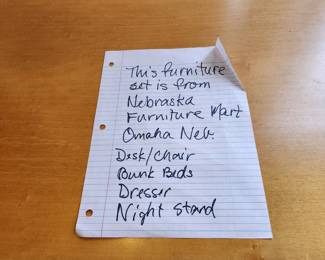 This furniture
set is from
Nebraska
Furniture Mart
Omaha Neb.
Desk/chair
Bunk Beds
Dresser
Night Stand